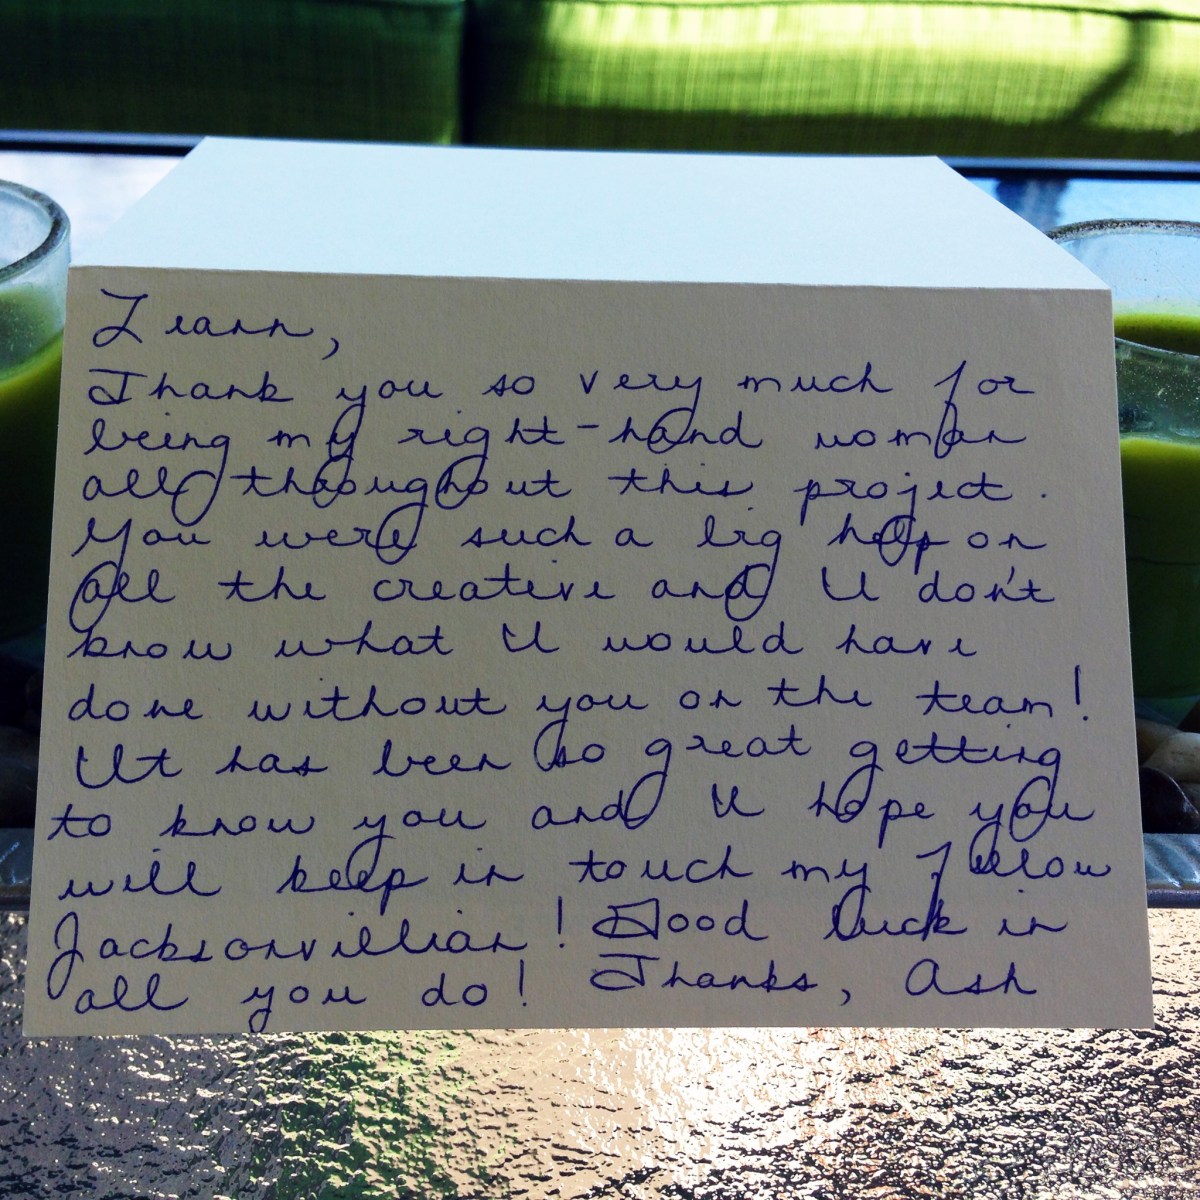 Leann,
Thank you so very much for
being my right-hand woman
all throughout this project.
You were such a big help on
all the creative and I don't
know what I would have
done without you on the team!
It has been so great getting
to know you and I hope you
will keep in touch my fellow
Jacksonvillian! Good luck in
all you do! Thanks, Ash